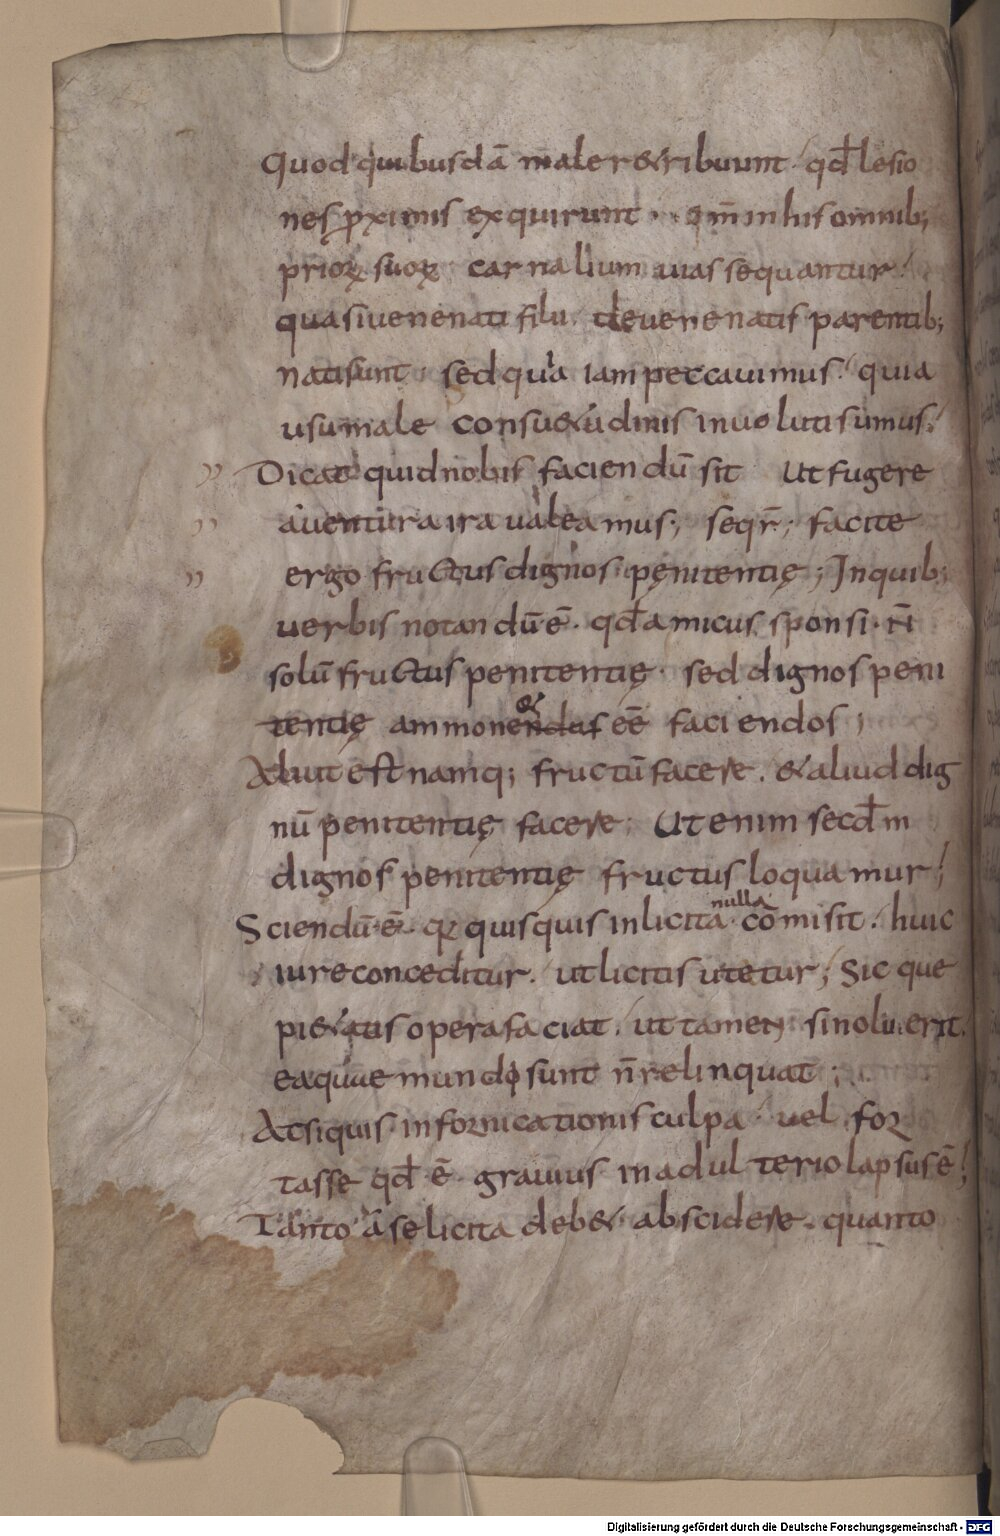 Quod quibusdā male r&ribuunt. qđ lesio
nes ꝓximis exquirunt. qm̄ in his omnib;
prioꝝ suoꝝ carnalium uias sequantur.
quasi uenenati filii. de uenenatis parentib;
nati sunt. sed quia iam peccauimus. quia
usu male consu&udinis inuoluti sumus.
Dicat quid nobis faciendū sit Ut fugere
a uentura ira ualeamus; seqr̄; facite
ergo fructus dignos penitentię; In quib;
uerbis notandū ē. qđ amicus sponsi. ñ
solū fructus penitentię. sed dignos peni
tentię ammonendus & eē faciendos;
Aliut est namq; fructū facere. & aliud dig
nū penitentię facere. Ut enim secđm
dignos penitentię fructus loquamur.
Sciendū ē. qꝛ quisquis inlicita nulla comisit. huic
iure conceditur. ut licitis utetur; Sicque
pi&atis opera faciat. ut tamen si noluerit.
ea quae mundi sunt ñ relinquat;
At si quis in fornicationis culpa. uel for
tasse qđ ē. grauius in adulterio lapsus ē.
Tanto a se licita deb& abscidere. quanto
Digitalisierung gefördert durch die Deutsche Forschungsgemeinschaft - DFG